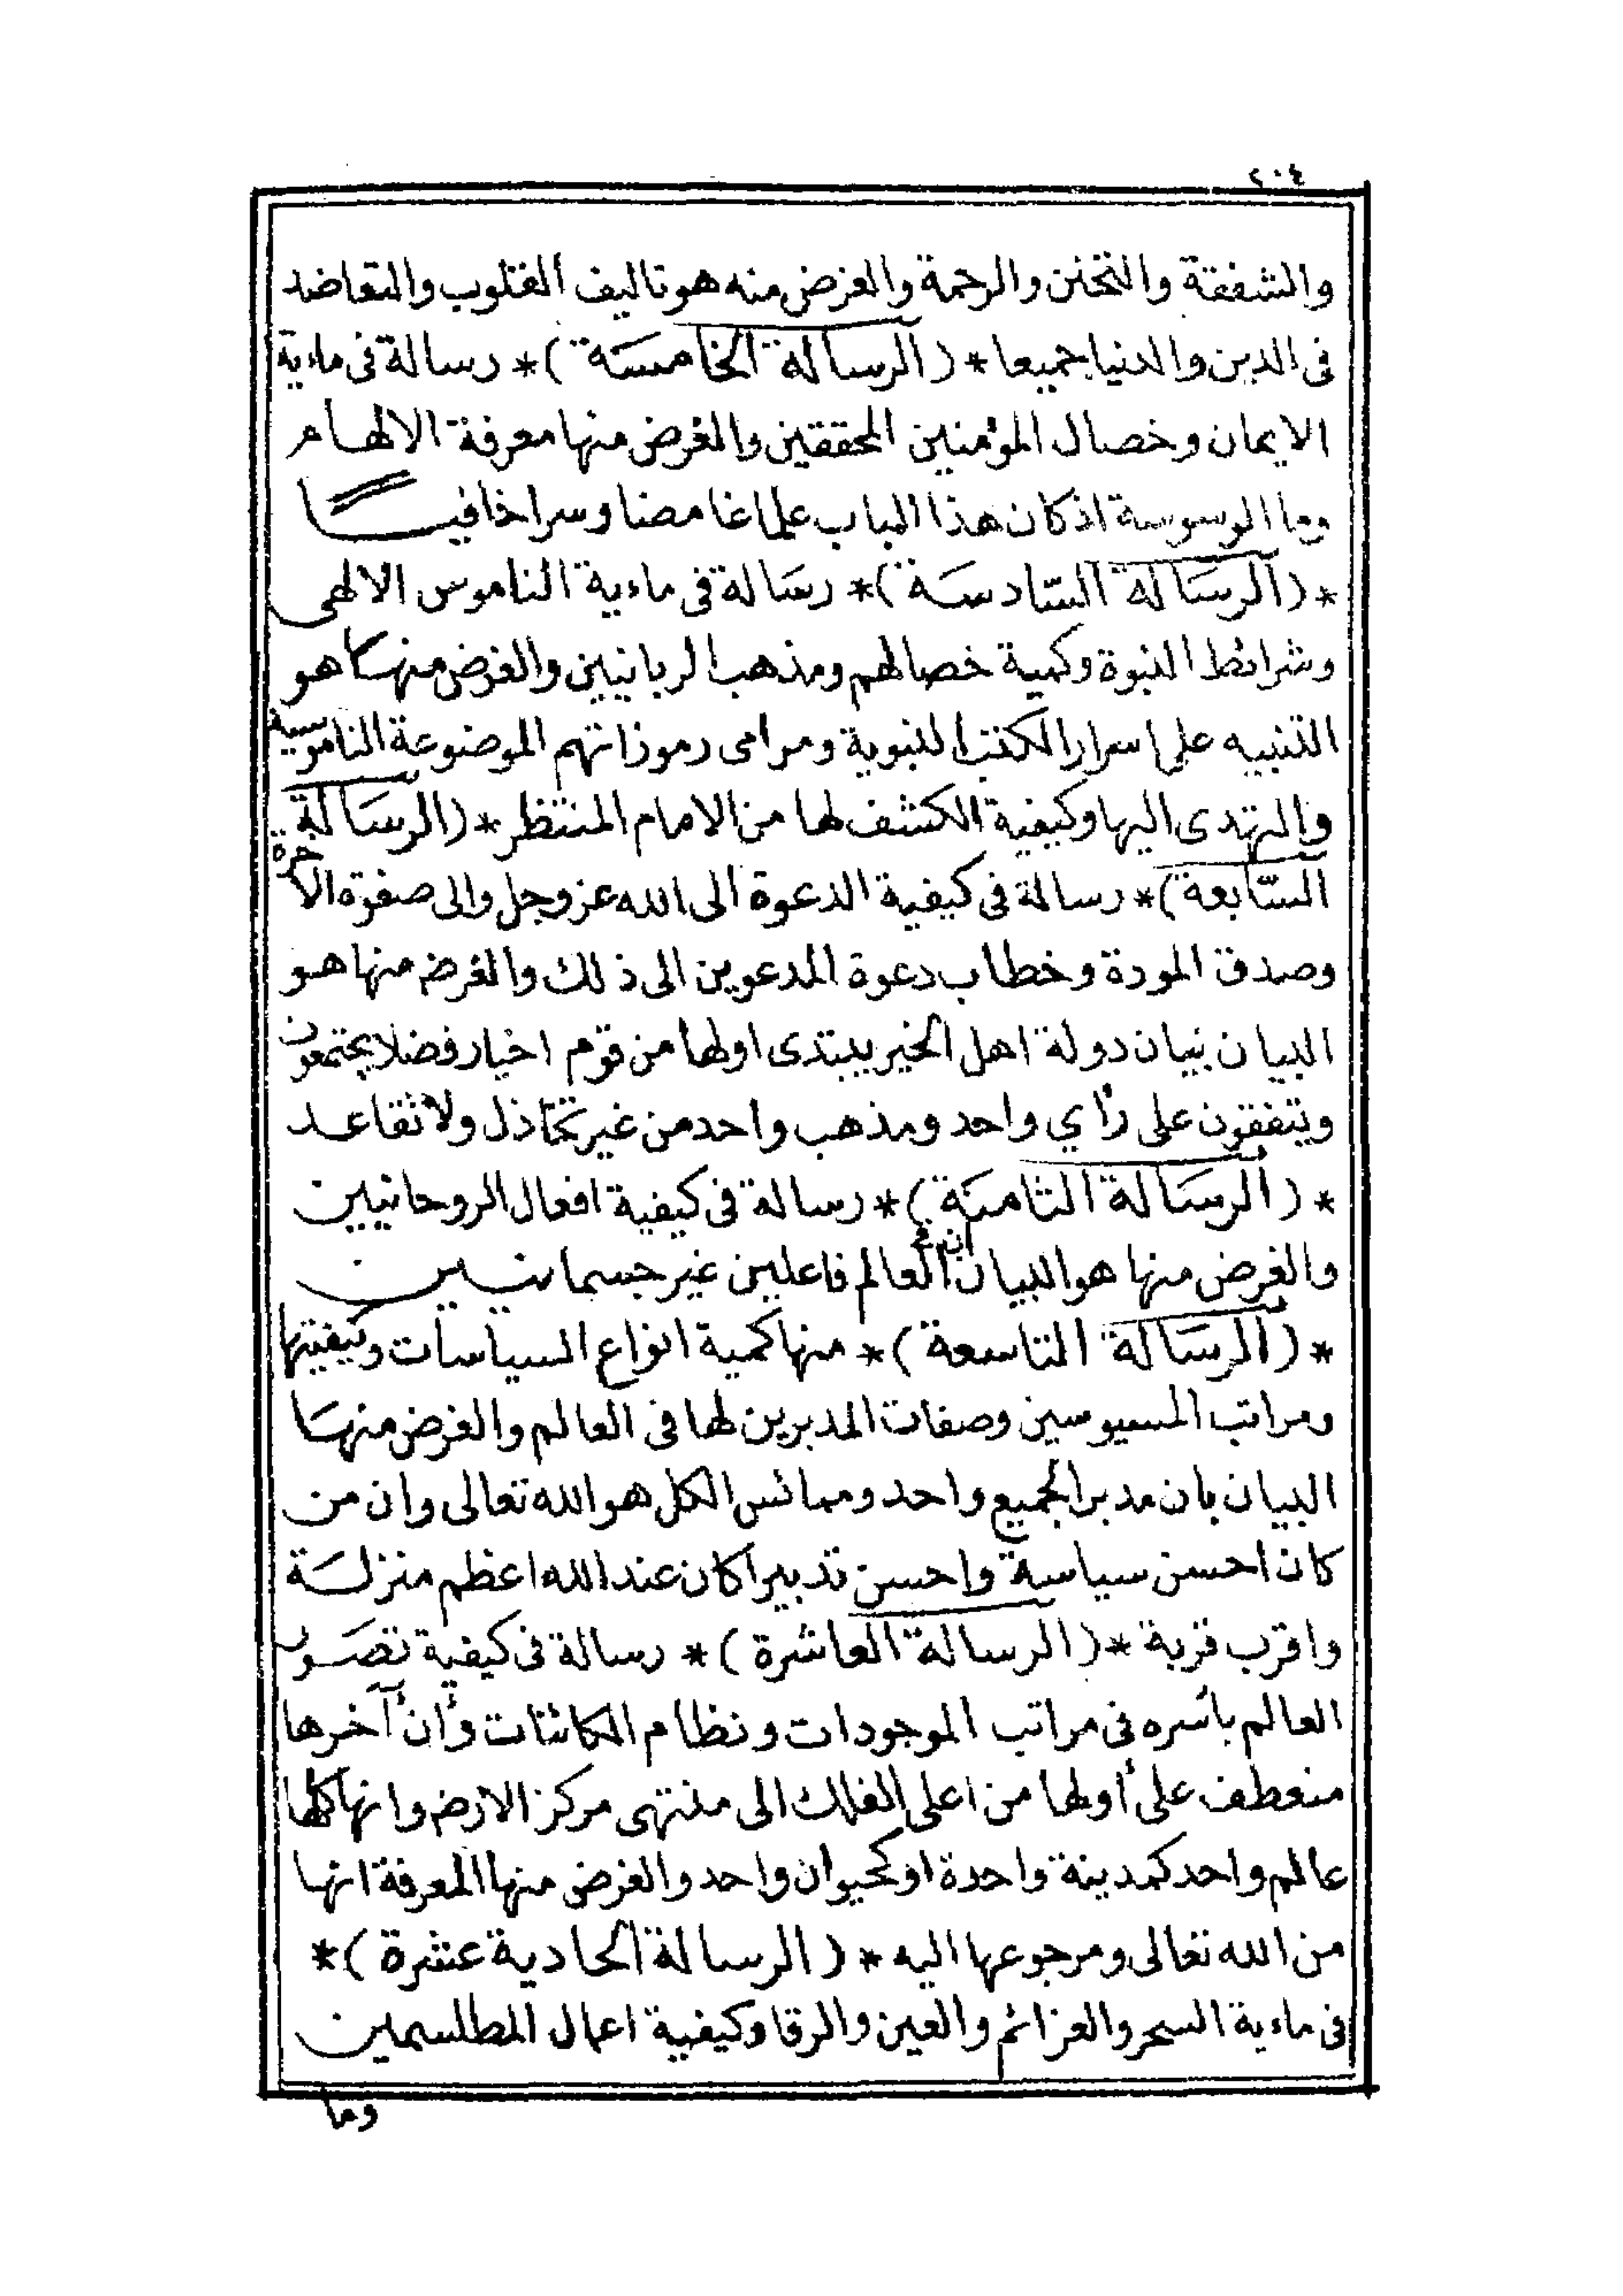 ٢٠٤
والشفقة والتحنن والرحمة والغرض منه هو تاليف القلوب والتعاضد
فى الدين والدنيا جميعا * (الرسالة الخامسة) * رسالة فى ماءية
الايمان وخصال المؤمنين المحققين والغرض منها معرفة الالهام
وما الوسوسة اذ كان هذا الباب علما غامضا وسرا خافيا
* (الرسالة السّادسة) * رسالة فى ماءية الناموس الالهى
وشرائط النبوة وكمية خصالهم ومذهب الربانيين والغرض منها هو
التنبيه على اسرار الكتب النبوية ومرامى رموزاتهم الموضوعة الناموسية
والمهتدى اليها وكيفية الكشف لها من الامام المنتظر * (الرسالة
السّابعة) * رسالة فى كيفية الدعوة الى الله عز وجل والى صفوة الاخرة
وصدق المودة وخطاب دعوة المدعوين الى ذلك والغرض منها هو
البيان بيان دولة اهل الخير يبتدى اولها من قوم اخيار فضلا يجتمعون
ويتفقون على رأي واحد ومذهب واحد من غير تخاذل ولا تقاعد
* (الرسالة الثامنة) * رسالة فى كيفية افعال الروحانيين
والغرض منها هو البيان ان فى العالم فاعلين غير جسمانيين
* (الرسالة التاسعة) * منها كمية انواع السياسات وكيفيتها
ومراتب المسيوسين وصفات المدبرين لها فى العالم والغرض منها
البيان بان مدبر الجميع واحد وسائس الكل هو الله تعالى وان من
كان احسن سياسة واحسن تدبيرا كان عند الله اعظم منزلة
واقرب قربة * (الرسالة العاشرة) * رسالة فى كيفية تصور
العالم بأسره فى مراتب الموجودات ونظام الكائنات وأن آخرها
منعطف على أولها من اعلى الفلك الى منتهى مركز الارض وانها كلها
عالم واحد كمدينة واحدة او كحيوان واحد والغرض منها المعرفة انها
من الله تعالى ومرجوعها اليه * (الرسالة الحادية عشرة) *
فى ماءية السحر والعزائم والعين والرقا وكيفية اعمال المطلسمين
وما